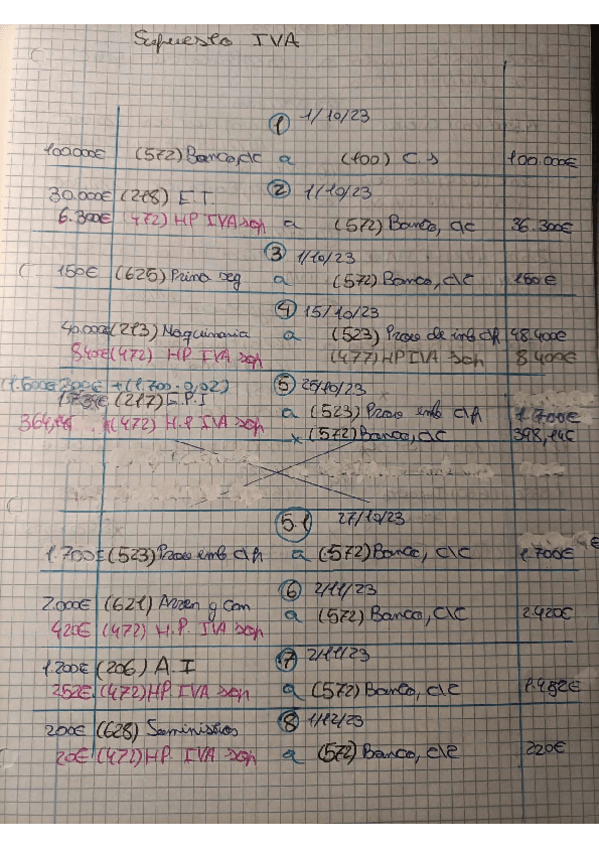 Supuesto IVA
① 1/10/23
100.000€ (572) Banco, c/c a (100) C.S 100.000€
30.000€ (218) E.T ② 1/10/23
6.300€ (472) HP IVA sop a (572) Banco, c/c 36.300€
③ 1/10/23
150€ (625) Prima seg a (572) Banco, c/c 150€
④ 15/10/23
40.000€ (213) Maquinaria a (523) Prov de inm c/p 48.400€
8.40€ (472) HP IVA sop (477) HP IVA sop 8.400€
(1.600€ 300€ + (1.700 · 0,02) ⑤ 25/10/23
(217) E.P.I a (523) Prov inm c/p 1.700€
(472) H.P IVA sop x (572) Banco, c/c 398,14€
5.1 27/10/23
1.700€ (523) Prov inm c/p a (572) Banco, c/c 1.700€
⑥ 2/11/23
2.000€ (621) Arren y can a (572) Banco, c/c 2.420€
420€ (472) H.P. IVA sop
⑦ 2/11/23
1.200€ (206) A.I
252€ (472) HP. IVA sop a (572) Banco, c/c 1.452€
⑧ 1/12/23
200€ (628) Suministros
20€ (472) HP. IVA sop a (572) Banco, c/c 220€